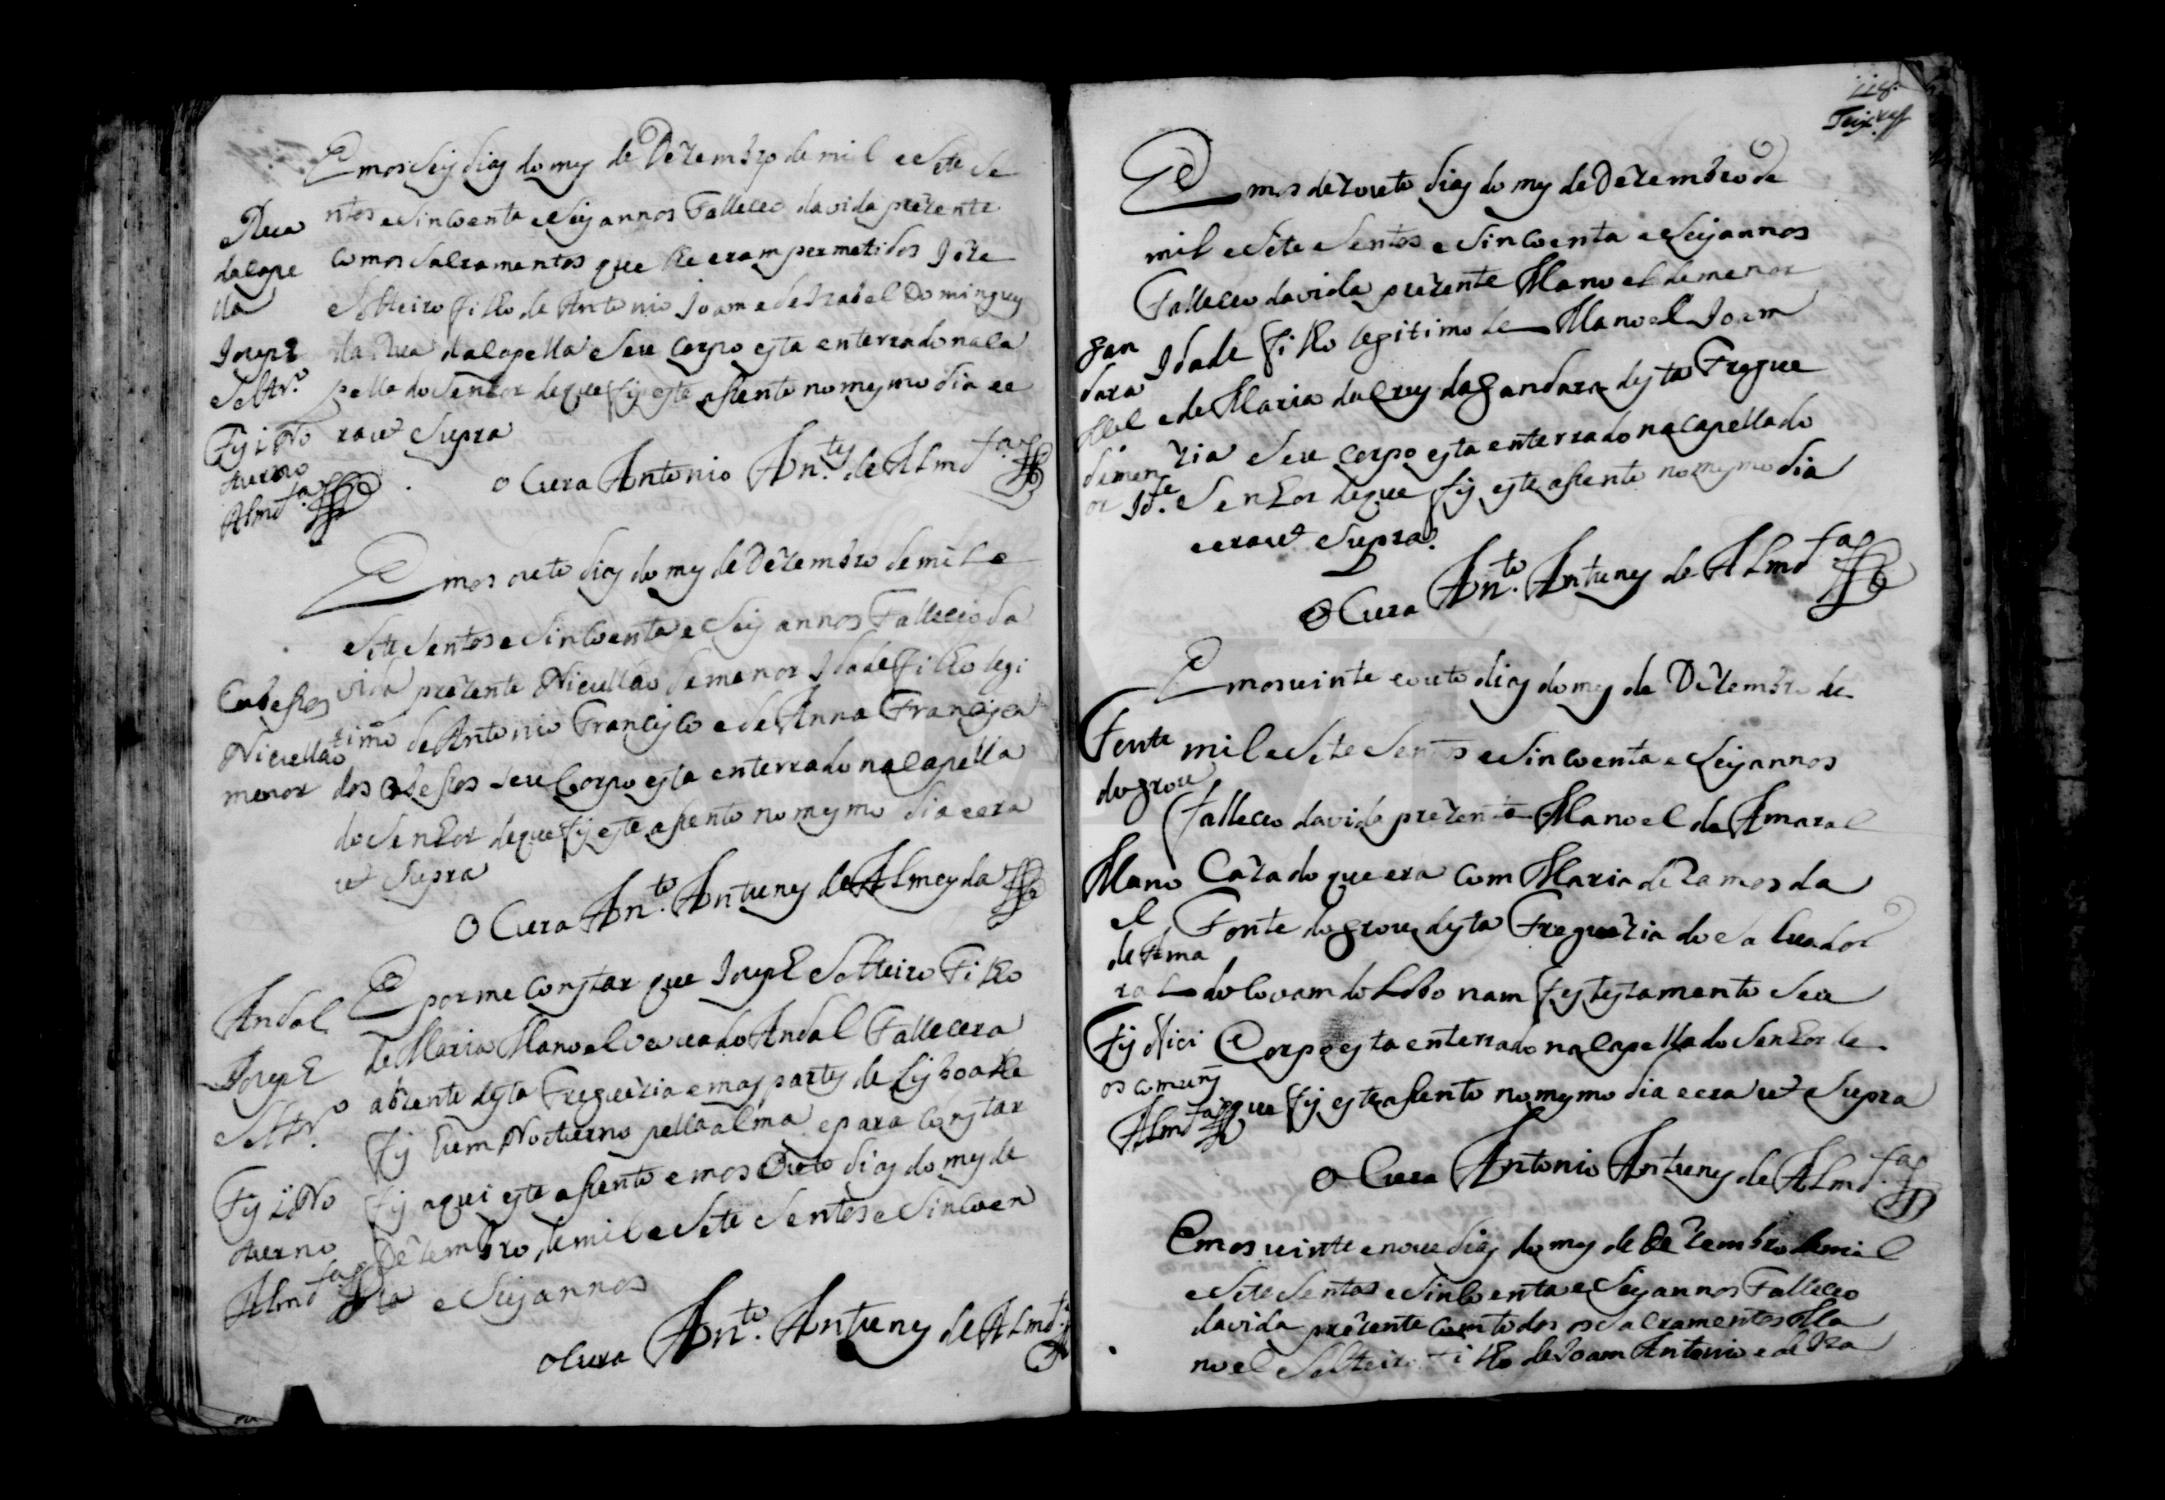 Em os seis dias do mes de Dezembro de mil e sete se
ntos e sincoenta e seis annos Falleceo da vida prezente
com os sacramentos que lhe eram permetidos Joze
solteiro filho de Antonio Joam e de Izabel Domingues
da Rua da Capella seu corpo esta enterrado na ca
pella do Senhor de que fis este asento no mesmo dia ee
ra ut supra
O Cura Antonio An.tes de Almd.a
Rua
da Cape
lla
Joseph
Soltr.o
Fis i No
turno
Almd.a
Em os outo dias do mes de Dezembro de mil e
sete sentos e sincoenta e seis annos Falleceo da
vida prezente Nicullao de menor Idade filho legi
timo de Antonio Francisco e de Anna Francisca
dos Cabessos seu Corpo esta enterrado na Capella
do Senhor de que fis este asento no mesmo dia e era
ut supra
O Cura An.to Antunes de Almeyda
Cabessos
Nicullao
menor
E por me constar que Joseph solteiro Filho
de Maria Manoel veuva do Andal Fallecera
abzente desta Freguezia e mas partes de Lisboa lhe
fis hum Nocturno pella alma e para constar
fis aqui este asento em os outo dias do mes de
Dezembro de mil e sete sentos e sincoen
ta e seis annos
O Cura An.to Antunes de Almd.a
Andal
Joseph
Soltr.o
Fis i No
turno
Almd.a
118.
Teix.ra
Em os dezouto dias do mes de Dezembro de
mil e sete sentos e sincoenta e seis annos
Falleceo da vida prezente Manoel de menor
Idade filho legitimo de Manoel Joam
e de Maria da Crus da Gandara desta Fregue
zia seu corpo esta enterrado na capella do
Senhor de que fis este asento no mesmo dia
e era ut supra.
O Cura An.to Antunes de Almd.a
Gan
dara
Mel
de men
or Id.e
Em os vinte e outo dias do mes de Dezembro de
mil e sete sentos e sincoenta e seis annos
Falleceo da vida prezente Manoel de Amaral
Cazado que era com Maria de Ramos da
Fonte do Grou desta Freguezia do Salvador
do Covam do Lobo nam fes testamento seu
Corpo esta enterrado na Capella do Senhor de
que fis este asento no mesmo dia e era ut supra
O Cura Antonio Antunes de Almd.a
Fonte
do Grou
Mano
el
de Ama
ral
Fis offici
os comuns
Almd.a
Em os vinte e nove dias do mes de Dezembro de mil
e sete sentos e sincoenta e seis annos Falleceo
da vida prezente com todos os sacramentos Ma
noel solteiro filho de Joam Antonio e de Iza